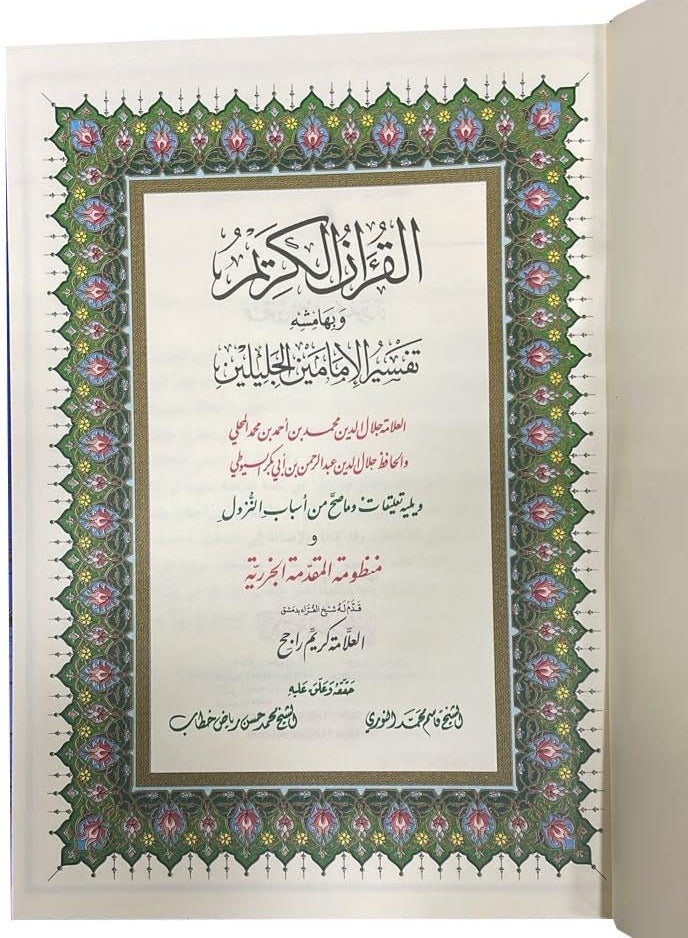 القرءان الكريم
وبهامشه
تفسير الإمامين الجليلين
العلامة جلال الدين محمد بن أحمد بن محمد المحلي
والحافظ جلال الدين عبد الرحمن بن أبي بكر السيوطي
ويليه تعليقات وما صح من أسباب النزول
و
منظومة المقدمة الجزرية
قدم له شيخ القراء بدمشق
العلامة كريم راجح
حققه وعلق عليه
الشيخ قاسم محمد النوري الشيخ محمد حسن رياض خطاب